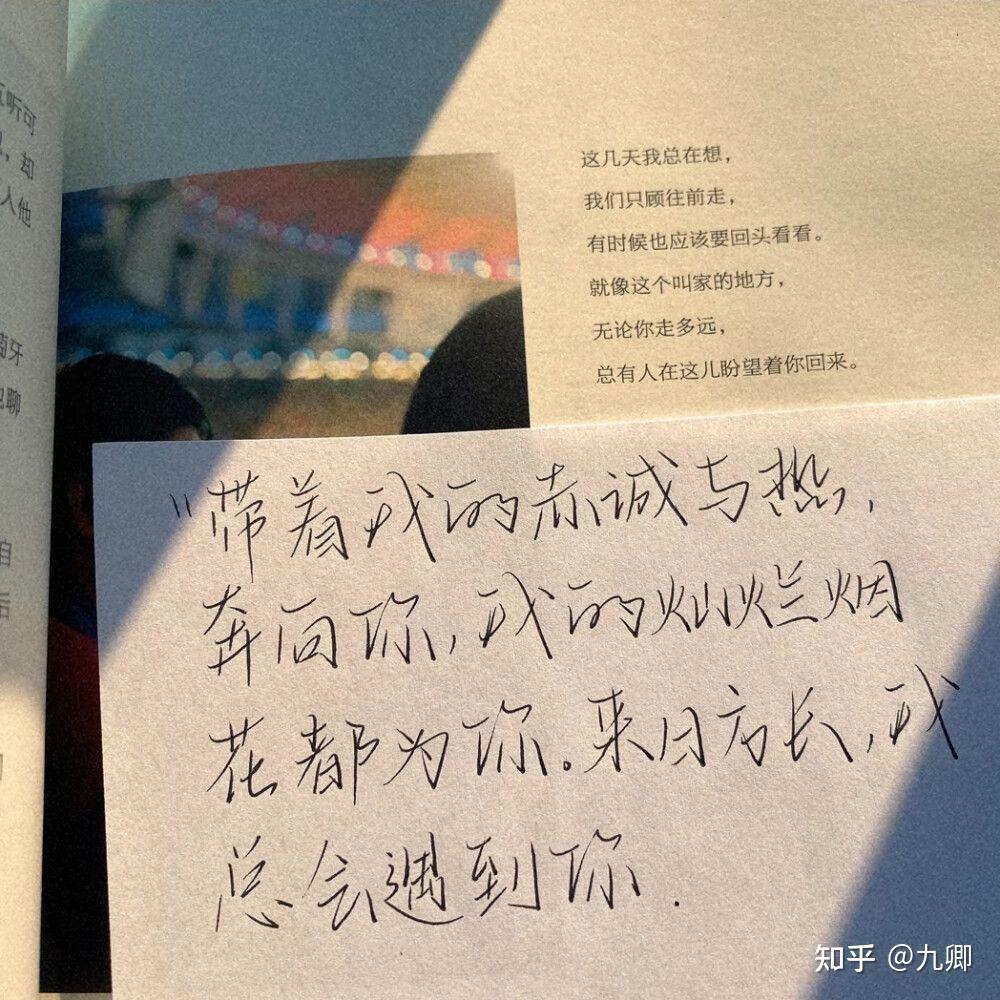 这几天我总在想，
我们只顾往前走，
有时候也应该要回头看看。
就像这个叫家的地方，
无论你走多远，
总有人在这儿盼望着你回来。
"带着我的赤诚与热，
奔向你，我的灿烂烟
花都为你。来日方长，我
总会遇到你.
听可
，却
人他
牙
聊
自
后
知乎 @九卿